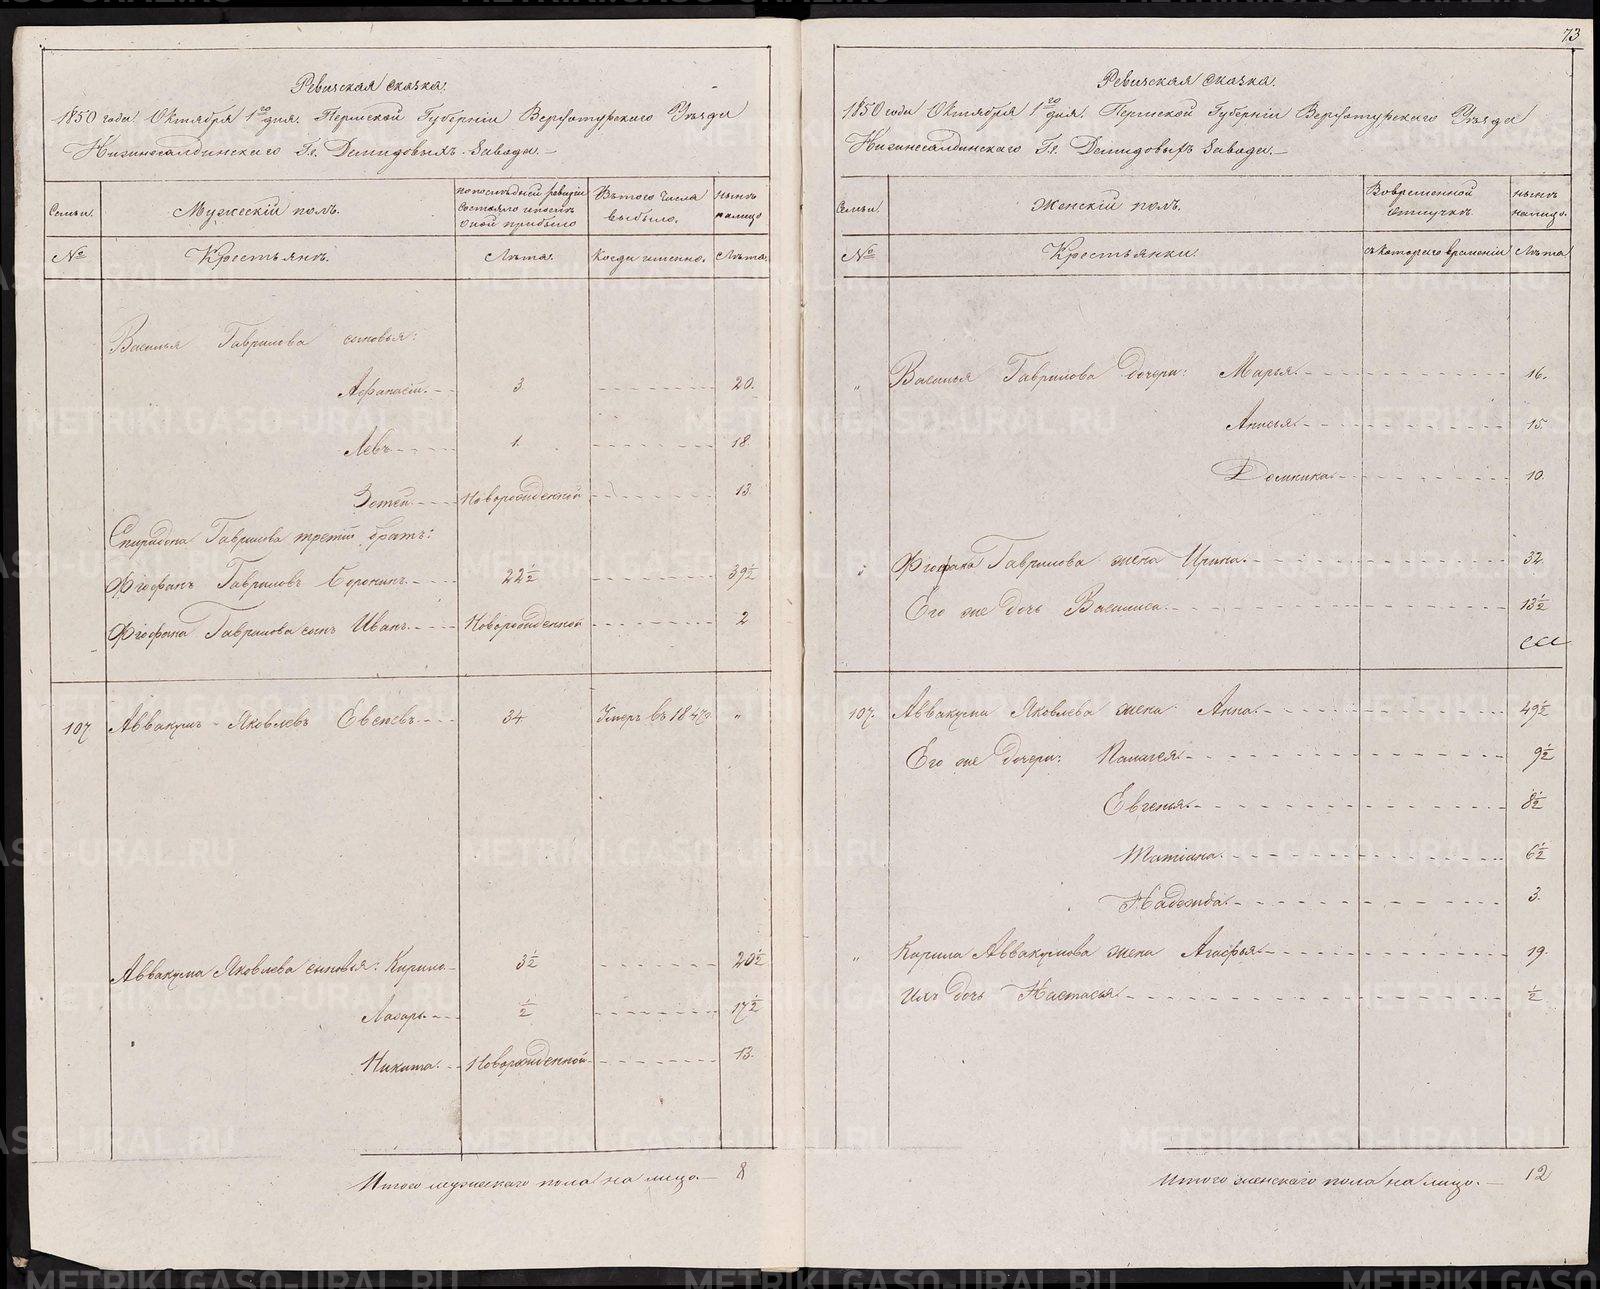 Ревизская сказка.
1850 года Октября 1го дня. Пермской Губерніи Верхотурскаго Уѣзда
Нижнесалдинскаго Гг. Демидовыхъ Завода.
Семьи.
Мужескій полъ.
по послѣдней ревизіи состояло и послѣ оной прибыло
Изъ того числа выбыло.
нынѣ на лицо
№
Крестьянъ.
Лѣта.
Когда именно.
Лѣта.
Василья Гаврилова сыновья:
Афанасій. 3 20.
Левъ 1. 18.
Зотей. Новорожденной 13
Спиридона Гаврилова третій братъ:
Фіофанъ Гавриловъ Соронинъ. 22½ 39½
Фіофана Гаврилова сынъ Иванъ. Новорожденной 2
107 Аввакумъ Яковлевъ Евсѣевъ. 34 Умеръ въ 1847г. "
Аввакума Яковлева сыновья: Кирило 3½ 20½
Лазарь. ½ 17½
Никита. Новорожденной 13.
Итого мужескаго пола на лицо. 8
73
Ревизская сказка.
1850 года Октября 1го дня. Пермской Губерніи Верхотурскаго Уѣзда
Нижнесалдинскаго Гг. Демидовыхъ Завода.
Семьи.
Женскій полъ.
Во временной отлучкѣ
нынѣ на лицо.
№
Крестьянки.
съ котораго времени
Лѣта
" Василья Гаврилова дочери: Марья. 16.
Анисья. 15.
Домника. 10.
Фіофана Гаврилова жена Ирина. 32.
Его же дочь Василиса. 13½
107. Аввакума Яковлева жена Анна. 49½
Его же дочери: Палагея. 9½
Евгенья. 8½
Татіана. 6½
Надежда. 3.
" Кирила Аввакумова жена Агафья. 19.
Ихъ дочь Настасья. ½
Итого женскаго пола на лицо. 12
METRIKI.GASO-URAL.RU